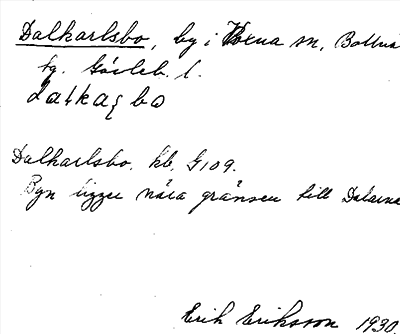 Dalkarlsbo, by i Voxna sn, Bollnä
tg. Gävleb. l.
dalkaʂbo
Dalkarlsbo. kb. G109.
Byn ligger nära gränsen till Dalarna
Erik Eriksson 1930.